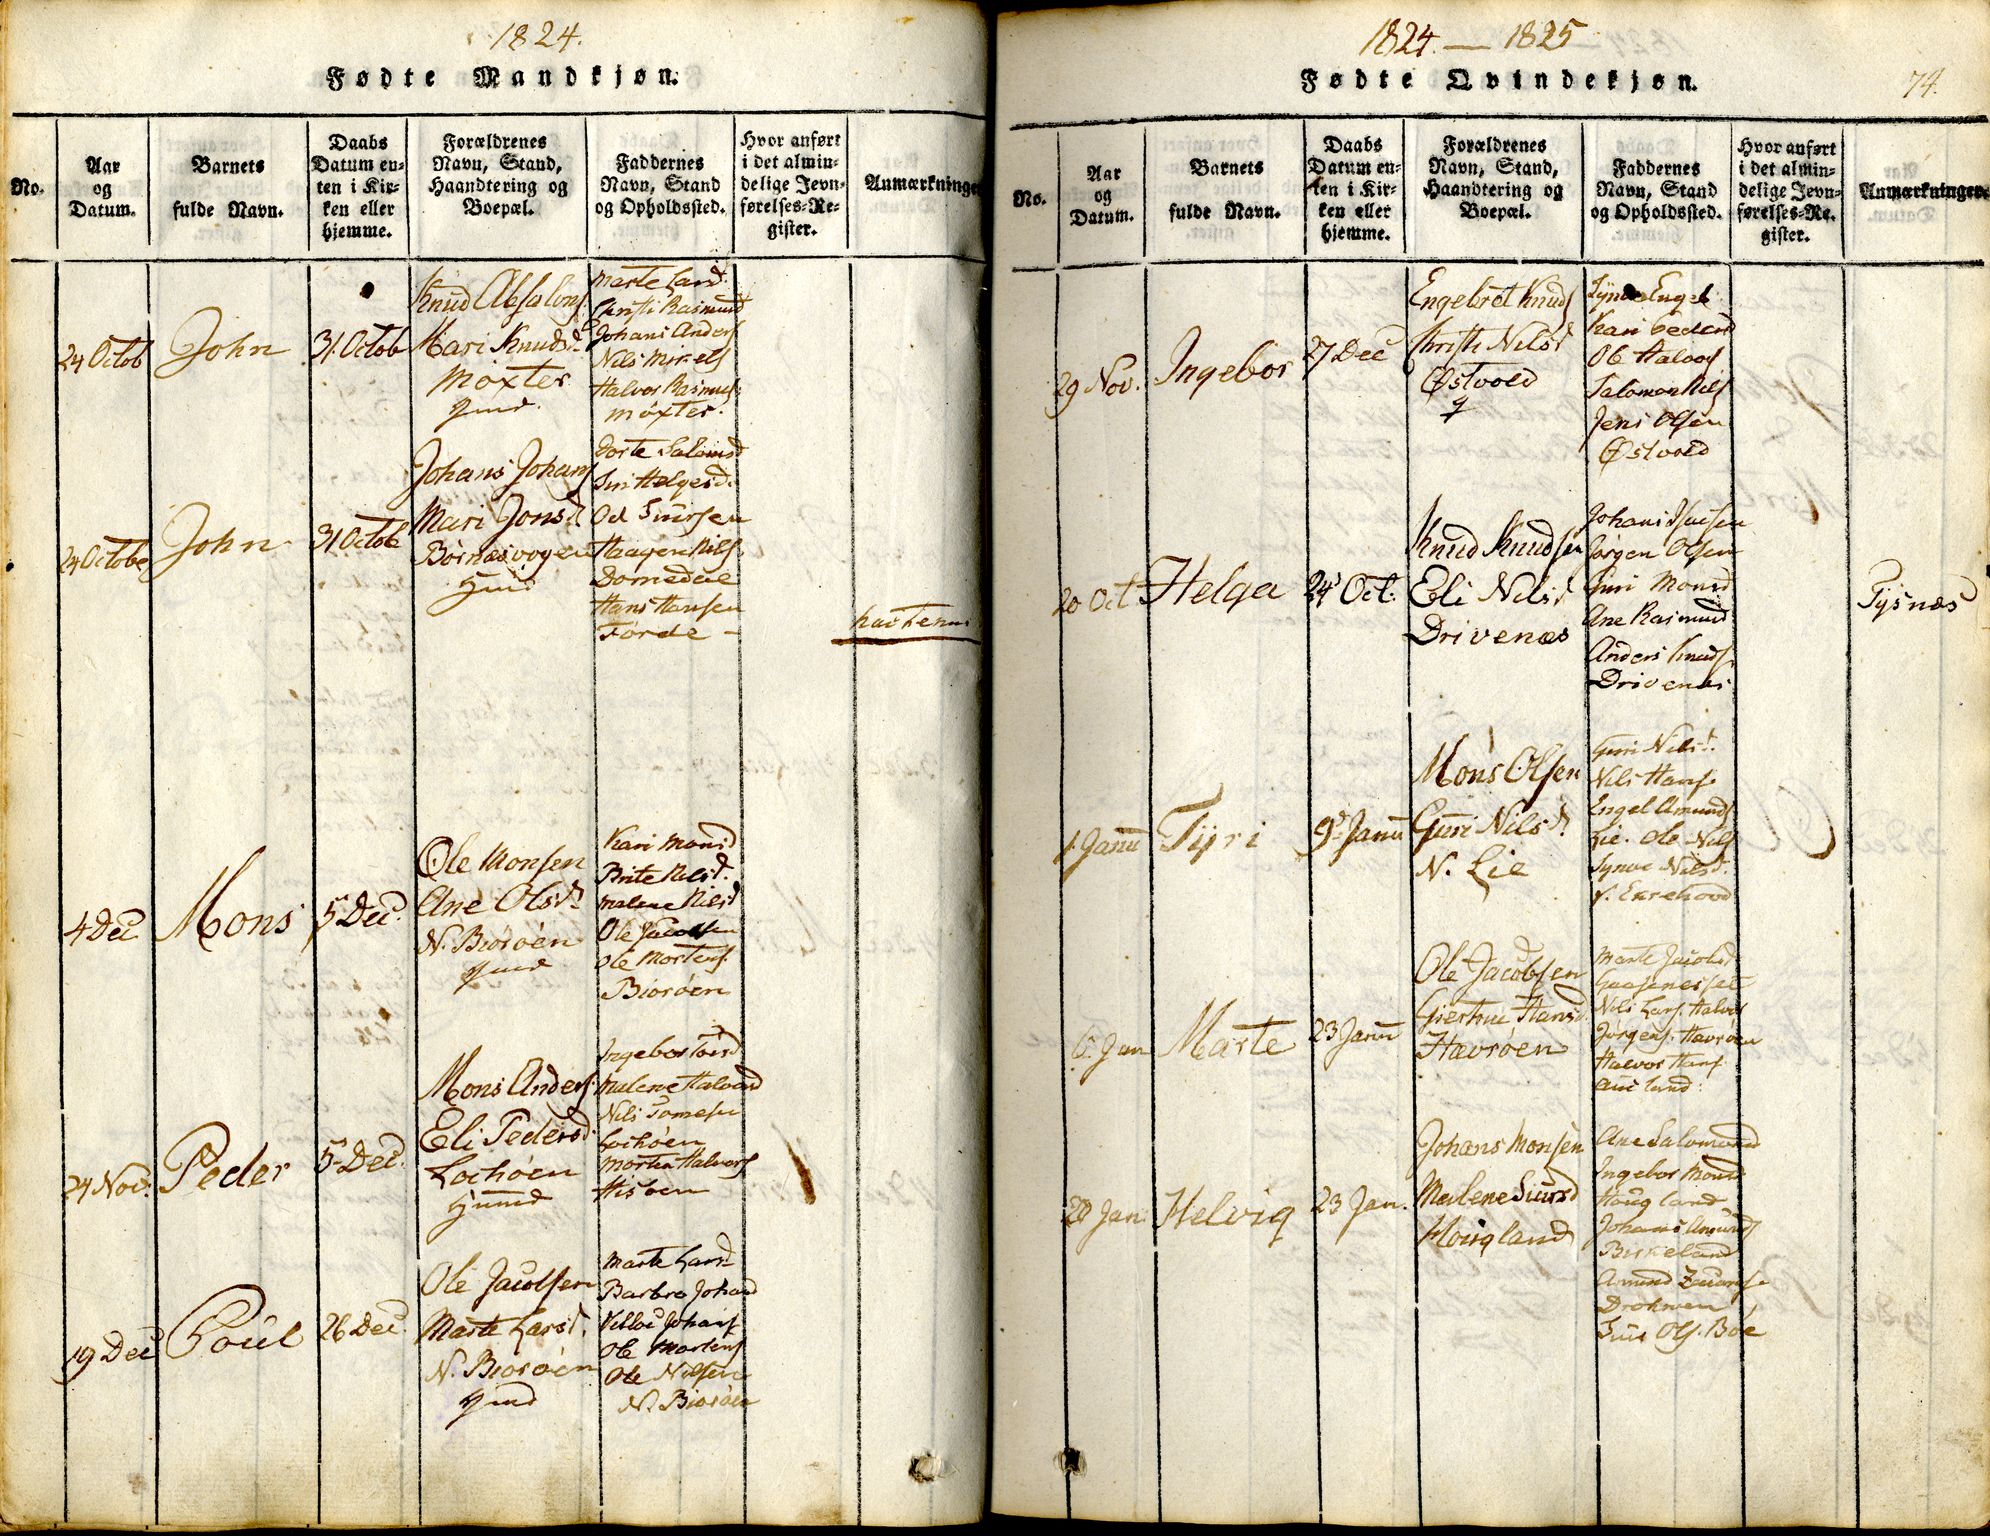 1824.
Fødte Mandkjøn.
No.
Aar
og
Datum.
Barnets
fulde Navn.
Daabs
Datum en-
ten i Kir-
ken eller
hjemme.
Forældrenes
Navn, Stand,
Haandtering og
Boepæl.
Faddernes
Navn, Stand
og Opholdssted.
Hvor anført
i det almin-
delige Jevn-
førelses-Re-
gister.
Anmærkninger
24 Octob
John
31 Octob
Knud Absalons.
Mari Knudsd.
Møxter
Marte Larsd.
Christi Rasmusd
Johans Anders
Nils Mikels
Halvor Rasmus.
Møxter.
24 Octobe
John
31 Octob
Johans Johans
Mari Jonsd.
Børnæsvogen
Dorte Salamsd
Siri Helgesd.
Od Siursen
Haagen Nils.
Domedeie
Hans Hansen
Førde –
4 Dec
Mons
5 Dec.
Ole Monsen
Ane Olsd.
N. Biørøen
Kari Monsd
Brite Nilsd.
Malene Nilsd
Ole Jacobsen
Ole Mortens.
Biørøen
24 Nov.
Peder
5 Dec.
Mons Anders.
Eli Pedersd.
Lochøen
Ingebor
Malene Halvorsd
Nils Tomesen
Lochøen
Morten Halvors
Hisøen
19 Dec
Poul
26 Dec.
Ole Jacobsen
Marte Larsd.
N. Biørøen
Marte Larsd
Barbra Johansd
Johans
Ole Mortens
Ole Nilsen
N. Biørøen
1824. — 1825
Fødte Qvindekjøn.
74.
No.
Aar
og
Datum.
Barnets
fulde Navn.
Daabs
Datum en-
ten i Kir-
ken eller
hjemme.
Forældrenes
Navn, Stand,
Haandtering og
Boepæl.
Faddernes
Navn, Stand
og Opholdssted.
Hvor anført
i det almin-
delige Jevn-
førelses-Re-
gister.
Anmærkninger.
29 Nov.
Ingebor
27 Dec
Engebret Knuds
Christi Nilsd
Østvold
Kari Pedersd
Ole Halvors
Salamon Nils
Jens Olsen
Østvold
20 Oct
Helga
24 Oct.
Knud Knudsen
Eli Nilsd
Drivenæs
Jørgen Olsen
Guri Monsd
Ane Rasmusd
Anders Knuds.
Drivenæs
Tysnæs
1. Janu
Tyri
9d. Janu
Mons Olsen
Guri Nilsd.
N. Lie
Guri Nilsd.
Nils Hans.
Engel Amunds
Lie. Ole Nils
Synve Nilsd.
6. Jan
Marte
23 Janu
Ole Jacobsen
Giertrue Hansd.
Havrøen
Marte Jacobsd.
Nils Lars. Halvor
Jørgens. Havrøen
Halvor Hans
20 Jan.
Helvig
23 Jan.
Johans Monsen
Malene Siursd
Hougland
Ane Salamonsd
Ingebor Monsd
Hougland
Johans Amunds
Birkeland
Amund
Siur Ols. Bøe